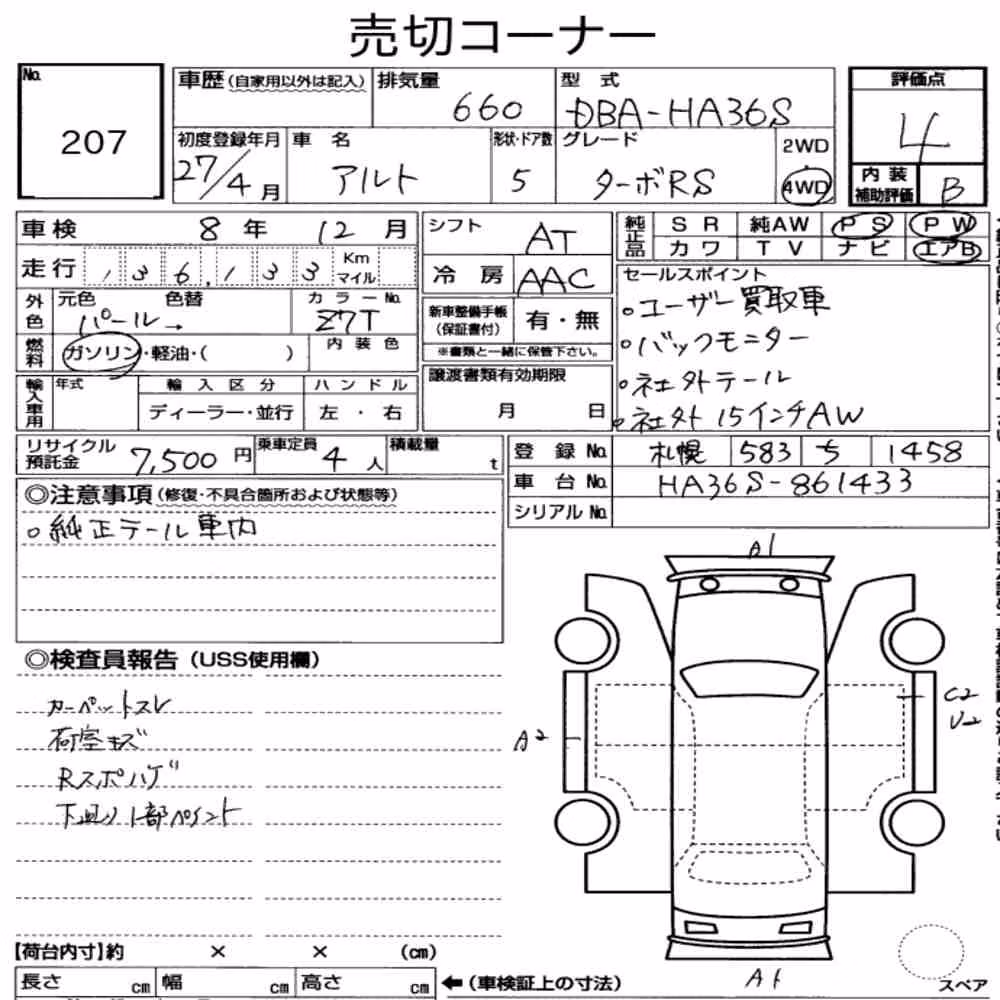 売切コーナー
No.
207
車歴(自家用以外は記入) 排気量 660 型式 DBA-HA36S
初度登録年月 27/4月 車名 アルト 形状・ドア数 5 グレード ターボRS 2WD 4WD
評価点 4
内装補助評価 B
車検 8年 12月
走行 136,133 Km マイル
外色 元色 パール→ 色替 カラーNo. Z7T
燃料 ガソリン・軽油・( ) 内装色
輸入車用 年式 輸入区分 ディーラー・並行 ハンドル 左・右
シフト AT
冷房 AAC
新車整備手帳(保証書付) 有・無
※書類と一緒に保管下さい。
譲渡書類有効期限
月 日
純正品 SR 純AW PS PW
カワ TV ナビ エアB
セールスポイント
。ユーザー買取車
。バックモニター
。社外テール
。社外15インチAW
リサイクル預託金 7,500円 乗車定員 4人 積載量 t
登録No. 札幌 583 ち 1458
車台No. HA36S-861433
シリアルNo.
◎注意事項(修復・不具合箇所および状態等)
。純正テール車内
◎検査員報告(USS使用欄)
カーペットスレ
荷室キズ
Rスポハゲ
下廻り1部ペイント
A1
A2
C2
U2
A1
【荷台内寸】約 × × (cm)
長さ cm 幅 cm 高さ cm ←(車検証上の寸法)
スペア